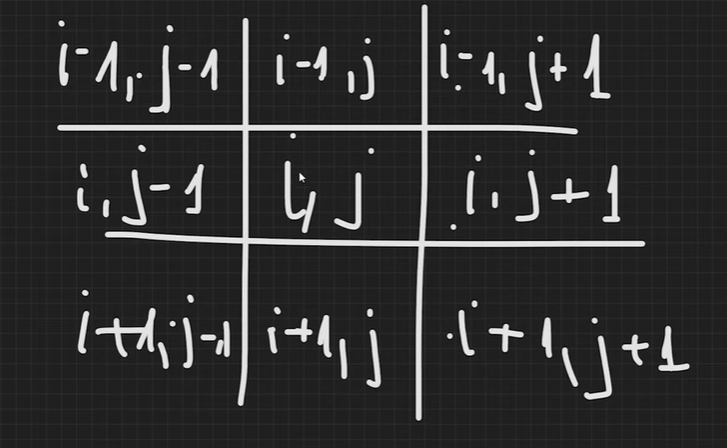 i-1, j-1 i-1, j i-1, j+1
i, j-1 i, j i, j+1
i+1, j-1 i+1, j i+1, j+1